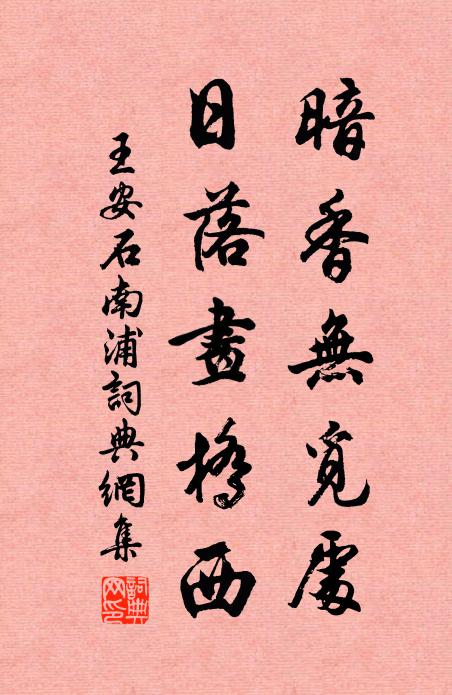 暗香無覓處
日落畫橋西
王安石南浦詞典網集
詞典網印